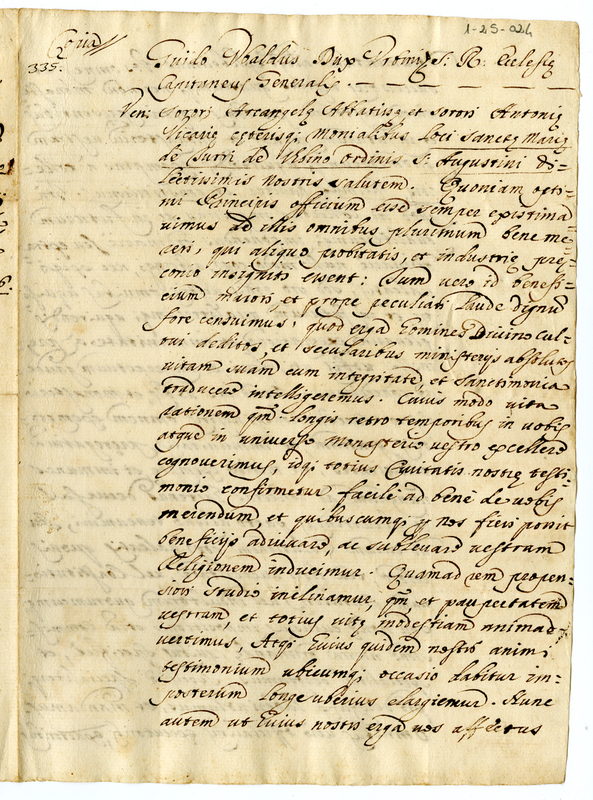 1-25-024
Copia
335.
Guido Vbaldus Dux Vrbini, S: R: Eclesię
Capitaneus Generalis. — — — — — —
Ven: Sorori Arcangelę Abbatissę et sorori Antonię
Vicarię cęterisq; Monialibus loci Sanctę Marię
de Turri de Vrbino ordinis S: Augustini di=
lectissimis nostris salutem. Quoniam opti=
mi Principis officium esse semper existima=
uimus ad illis omnibus plurimum bene me=
reri, qui aliquo probitatis, et industrię prę=
conio insigniti essent: Tum vero id benefi=
cium maiori, et prope peculiari laude dignũ
fore censuimus, quod erga homines Diuino cul=
tui deditos, et secularibus ministerijs absolutos
vitam suam cum integritate, et sanctimonia
traducere intelligeremus. Cuius modo vitę
rationem qm̃ longis retro temporibus in vobis
atque in uniuerso Monasterio vestro excellere
cognouerimus, idq; totius Ciuitatis nostrę testi=
monio confirmetur facile ad bene de vobis
merendum, et quibuscumq; p nos fieri possit
beneficijs adiuuare, ac subleuare vestram
Religionem inducimur. Quam ad rem propen=
siori studio inclinamur, qm̃ et paupertatem
vestram, et totius vitę modestiam animad=
uertimus, Atq; huius quidem nostri animi
testimonium ubicumq; occasio dabitur im=
posterum longe uberius elargiemur. Nunc
autem ut huius nostri erga vos affectus